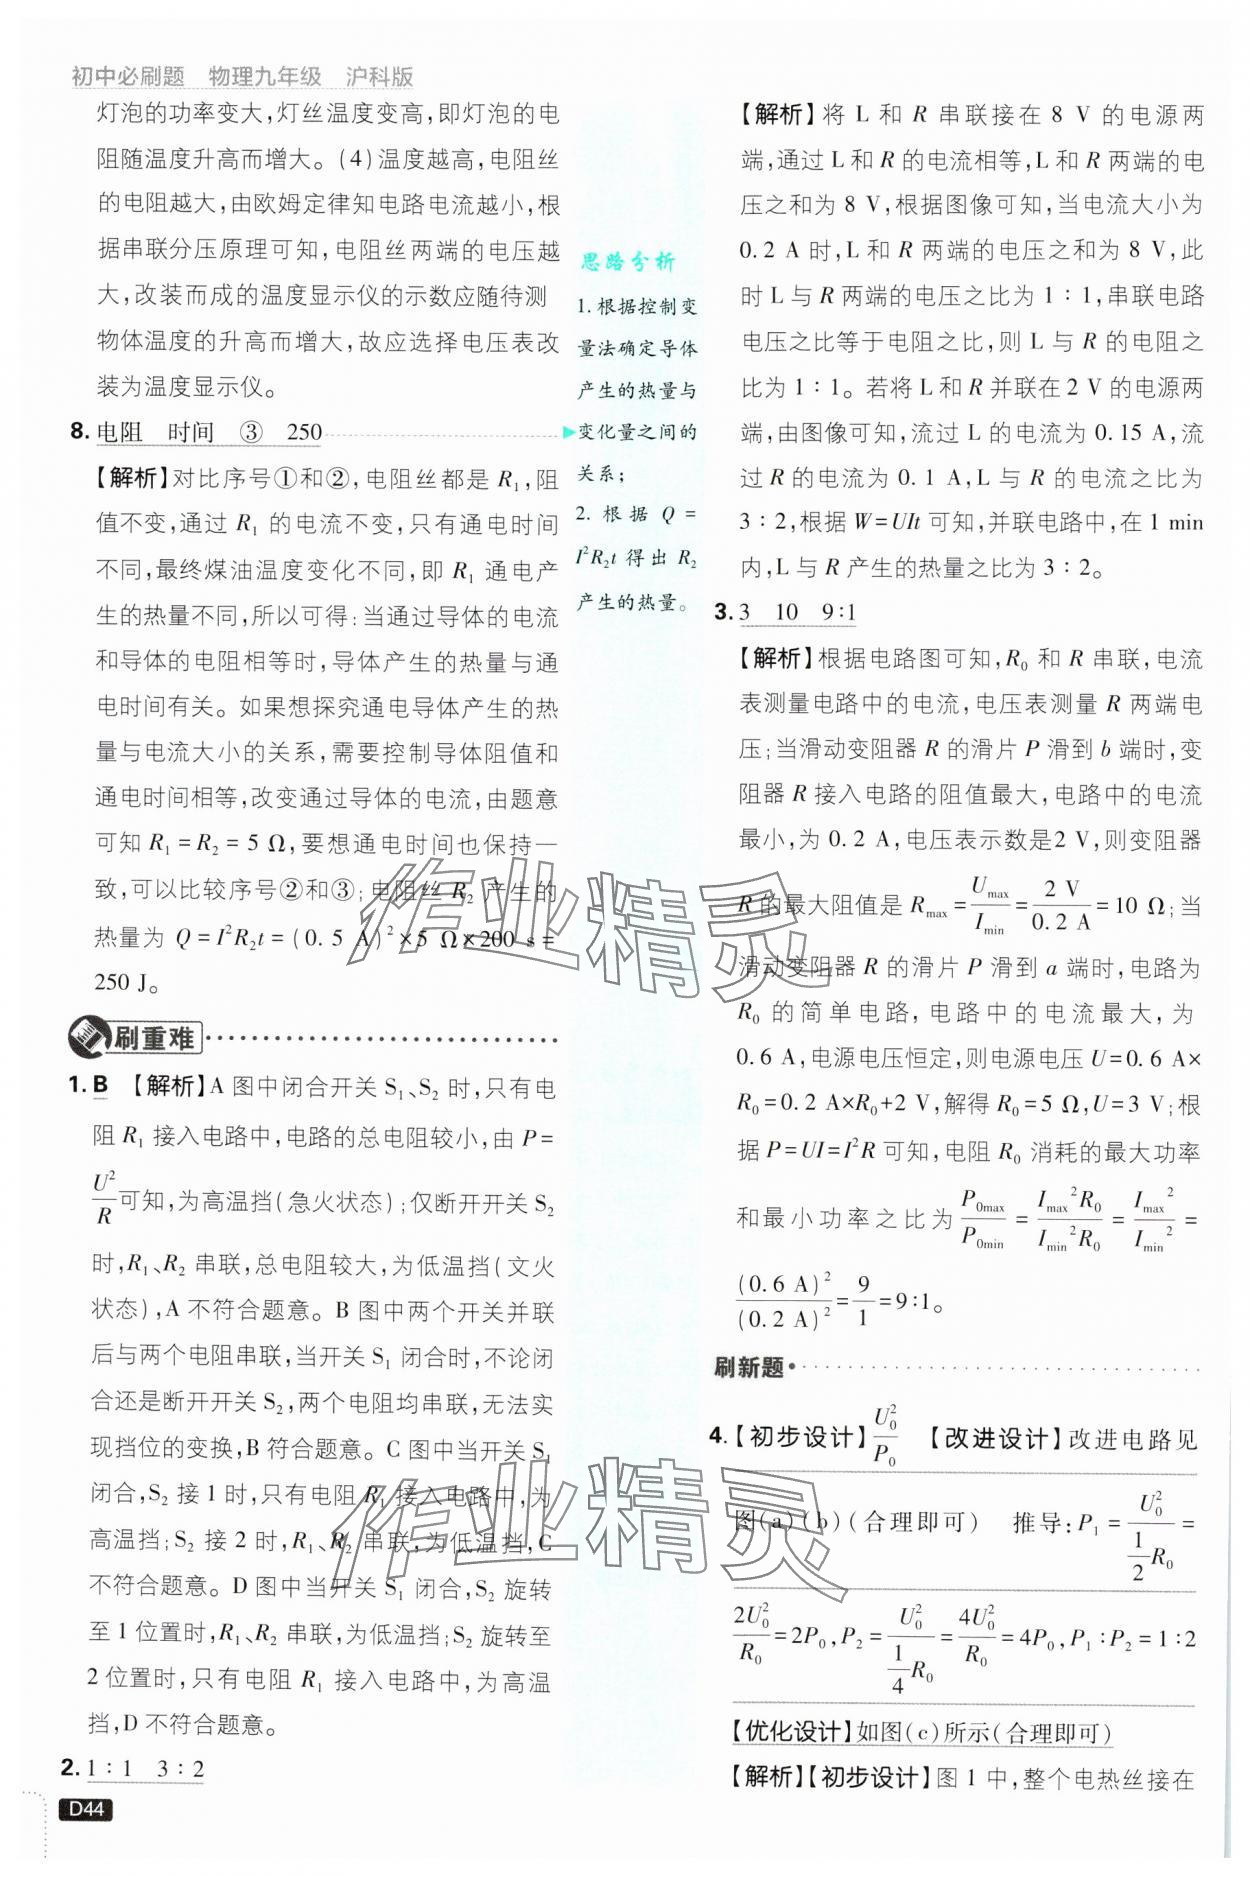 初中必刷题 物理九年级 沪科版
灯泡的功率变大,灯丝温度变高,即灯泡的电
阻随温度升高而增大。(4)温度越高,电阻丝
的电阻越大,由欧姆定律知电路电流越小,根
据串联分压原理可知,电阻丝两端的电压越
大,改装而成的温度显示仪的示数应随待测
物体温度的升高而增大,故应选择电压表改
装为温度显示仪。
8. 电阻 时间 ③ 250
【解析】对比序号①和②,电阻丝都是 R₁,阻
值不变,通过 R₁ 的电流不变,只有通电时间
不同,最终煤油温度变化不同,即 R₁ 通电产
生的热量不同,所以可得:当通过导体的电流
和导体的电阻相等时,导体产生的热量与通
电时间有关。如果想探究通电导体产生的热
量与电流大小的关系,需要控制导体阻值和
通电时间相等,改变通过导体的电流,由题意
可知 R₁=R₂=5 Ω,要想通电时间也保持一
致,可以比较序号②和③;电阻丝 R₂ 产生的
热量为 Q=I²R₂t=(0.5 A)²×5 Ω×200 s=
250 J。
刷重难
1. B 【解析】A 图中闭合开关 S₁、S₂ 时,只有电
阻 R₁ 接入电路中,电路的总电阻较小,由 P=
U²/R 可知,为高温挡(急火状态);仅断开开关 S₂
时,R₁、R₂ 串联,总电阻较大,为低温挡(文火
状态),A 不符合题意。B 图中两个开关并联
后与两个电阻串联,当开关 S₁ 闭合时,不论闭
合还是断开开关 S₂,两个电阻均串联,无法实
现挡位的变换,B 符合题意。C 图中当开关 S₁
闭合,S₂ 接 1 时,只有电阻 R₁ 接入电路中,为
高温挡;S₂ 接 2 时,R₁、R₂ 串联,为低温挡,C
不符合题意。D 图中当开关 S₁ 闭合,S₂ 旋转
至 1 位置时,R₁、R₂ 串联,为低温挡;S₂ 旋转至
2 位置时,只有电阻 R₁ 接入电路中,为高温
挡,D 不符合题意。
2. 1∶1 3∶2
D44
思路分析
1. 根据控制变
量法确定导体
产生的热量与
变化量之间的
关系;
2. 根据 Q=
I²R₂t 得出 R₂
产生的热量。
【解析】将 L 和 R 串联接在 8 V 的电源两
端,通过 L 和 R 的电流相等,L 和 R 两端的电
压之和为 8 V,根据图像可知,当电流大小为
0.2 A 时,L 和 R 两端的电压之和为 8 V,此
时 L 与 R 两端的电压之比为 1∶1,串联电路
电压之比等于电阻之比,则 L 与 R 的电阻之
比为 1∶1。若将 L 和 R 并联在 2 V 的电源两
端,由图像可知,流过 L 的电流为 0.15 A,流
过 R 的电流为 0.1 A,L 与 R 的电流之比为
3∶2,根据 W=UIt 可知,并联电路中,在 1 min
内,L 与 R 产生的热量之比为 3∶2。
3. 3 10 9∶1
【解析】根据电路图可知,R₀ 和 R 串联,电流
表测量电路中的电流,电压表测量 R 两端电
压;当滑动变阻器 R 的滑片 P 滑到 b 端时,变
阻器 R 接入电路的阻值最大,电路中的电流
最小,为 0.2 A,电压表示数是2 V,则变阻器
R 的最大阻值是 Rmax=Umax/Imin=2 V/0.2 A=10 Ω;当
滑动变阻器 R 的滑片 P 滑到 a 端时,电路为
R₀ 的简单电路,电路中的电流最大,为
0.6 A,电源电压恒定,则电源电压 U=0.6 A×
R₀=0.2 A×R₀+2 V,解得 R₀=5 Ω,U=3 V;根
据 P=UI=I²R 可知,电阻 R₀ 消耗的最大功率
和最小功率之比为 P0max/P0min=Imax²R₀/Imin²R₀=Imax²/Imin²=
(0.6 A)²/(0.2 A)²=9/1=9∶1。
刷新题
4. 【初步设计】U₀²/P₀ 【改进设计】改进电路见
图(a)(b)(合理即可) 推导:P₁=U₀²/(1/2 R₀)=
2U₀²/R₀=2P₀,P₂=U₀²/(1/4 R₀)=4U₀²/R₀=4P₀,P₁∶P₂=1∶2
【优化设计】如图(c)所示(合理即可)
【解析】【初步设计】图 1 中,整个电热丝接在
作业精灵
作业精灵